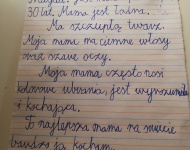 30 lat. Mama jest ładna.
Ma szczupłą twarz.
Moja mama ma ciemne włosy
oraz szare oczy.
Moja mama często nosi
kolorowe ubrania, jest wyrozumiała
i kochająca.
To najlepsza mama na świecie
bardzo ją kocham.